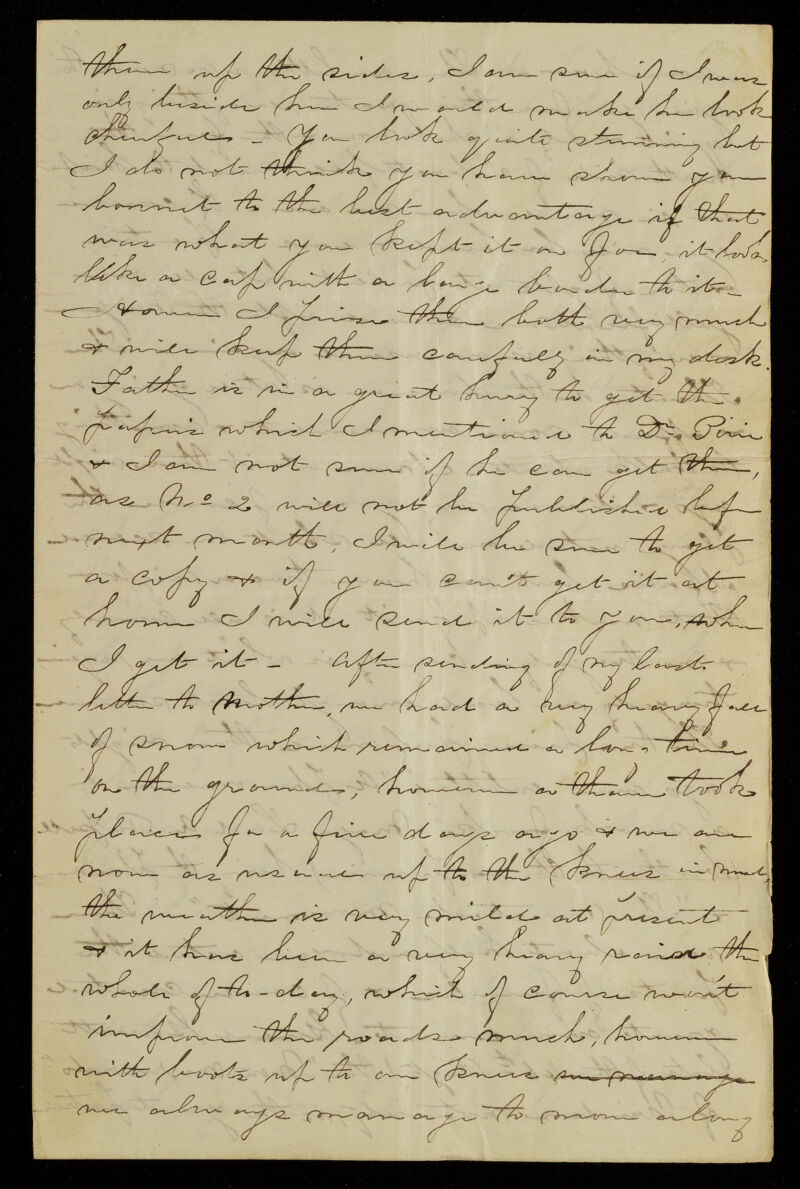 them up the sides, I am sure if I was
only beside her I would make her look
cheerful - You look quite stunning but
I do not think you have shown your
bonnet to the best advantage if that
was what you kept it on for, it looks
like a cap with a large border to it -
However I prize them both very much
& will keep them carefully in my desk.
Father is in a great hurry to get the
papers which I mentioned to Dr. Pirie
& I am not sure if he can get them,
as No 2 will not be published before
next month, I will be sure to get
a copy & if you can't get it at
home I will send it to you, when
I get it - After sending of my last
letter to Mother, we had a very heavy fall
of snow which remained a long time
on the ground, however a thaw took
place for a few days ago & we are
now as usual up to the knees in mud,
the weather is very mild at present
& it has been a very heavy rain the
whole of to-day, which of course won't
improve the roads much, however
with boots up to our knees we manage
we always manage to move along